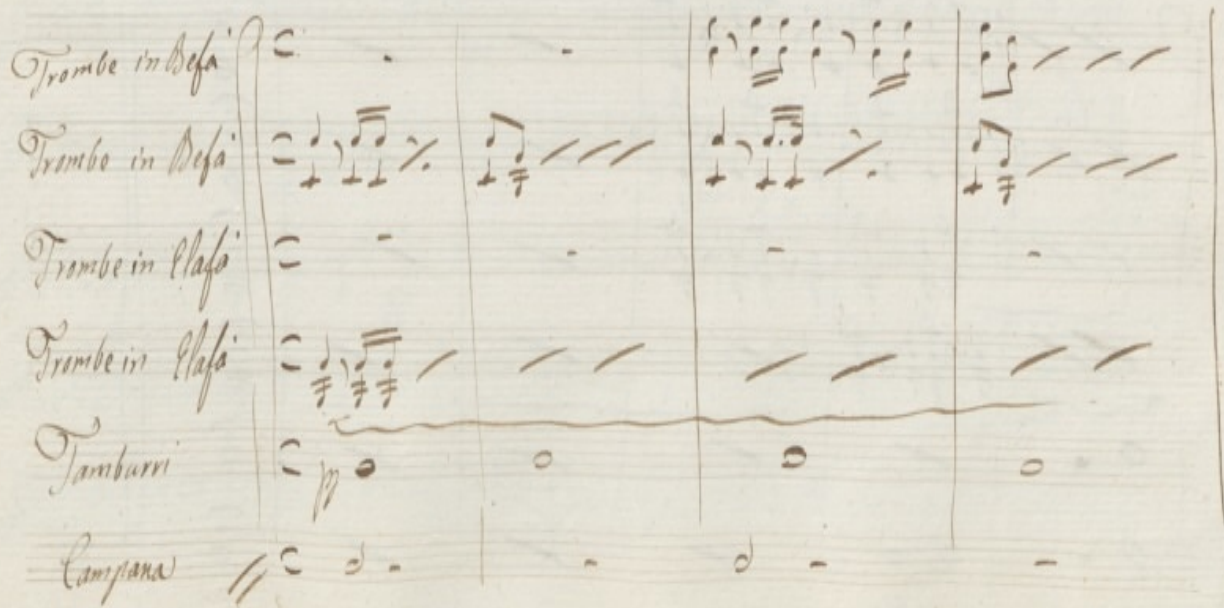 Trombe in Befà
Trombe in Befà
Trombe in Elafà
Trombe in Elafà
Tamburri
pp
Campana